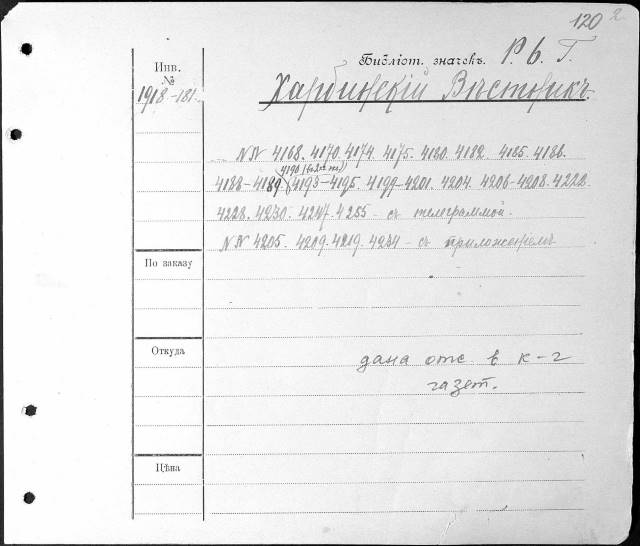 120 2
Библіот. значекъ. Р. б. Г.
Инв.
№
1918-181.
Харбинскій Вѣстникъ.
NN 4168. 4170. 4174. 4175. 4180. 4182. 4185. 4186.
4190
4188-4189, 4193-4195. 4199-4201. 4204. 4206-4208. 4222.
4228. 4230. 4247. 4255 - съ телеграммой.
NN 4205. 4209. 4219. 4234 - съ приложеніемъ
По заказу
Откуда
дана отс. в к-г
газет.
Цѣна